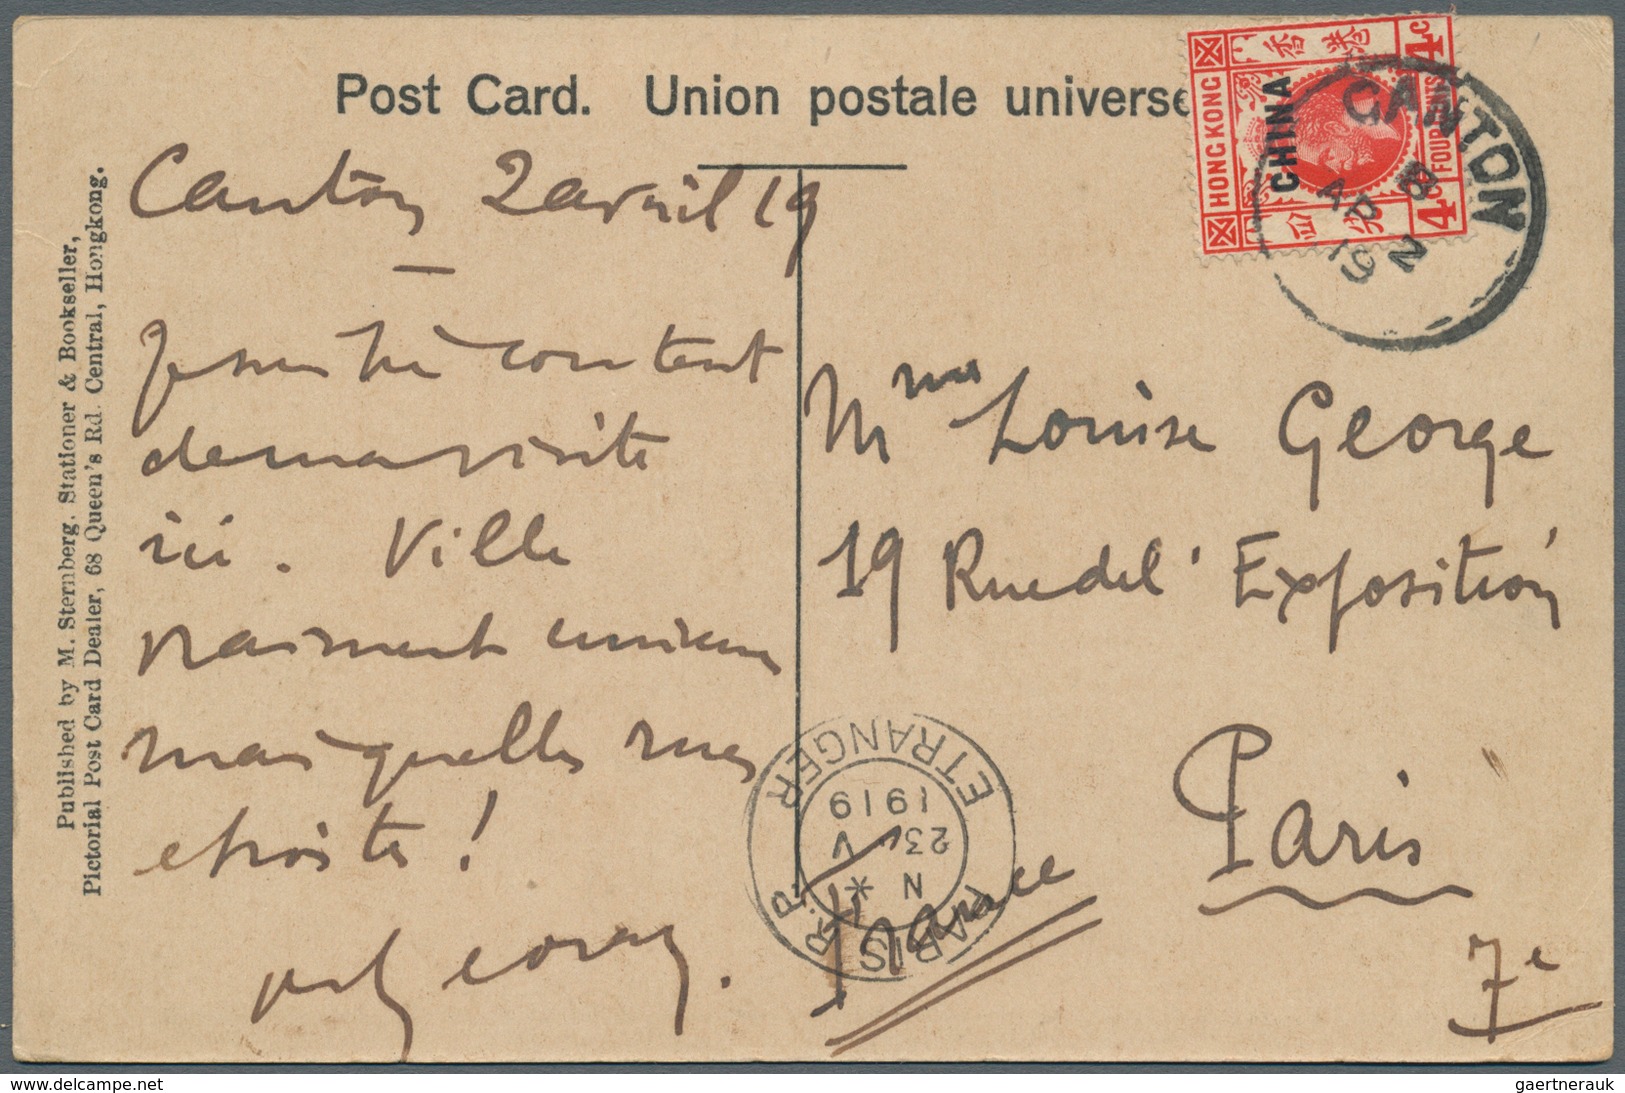 Post Card. Union postale universe
Published by M. Sternberg, Stationer & Bookseller,
Pictorial Post Card Dealer, 68 Queen's Rd. Central, Hongkong.
Canton 2 avril 19
Je suis très content
de ma visite
ici. Ville
vraiment curieuse
mais quelles rues
étroites !
Mme Louise George
19 Rue de l'Exposition
Paris
7e
France
HONG KONG
CHINA
香港
4c
FOUR CENTS
4c
CANTON
B
AP 2
19
PARIS R.P.
ETRANGER
N *
23 V
1919
gaertnerauk
www.delcampe.net